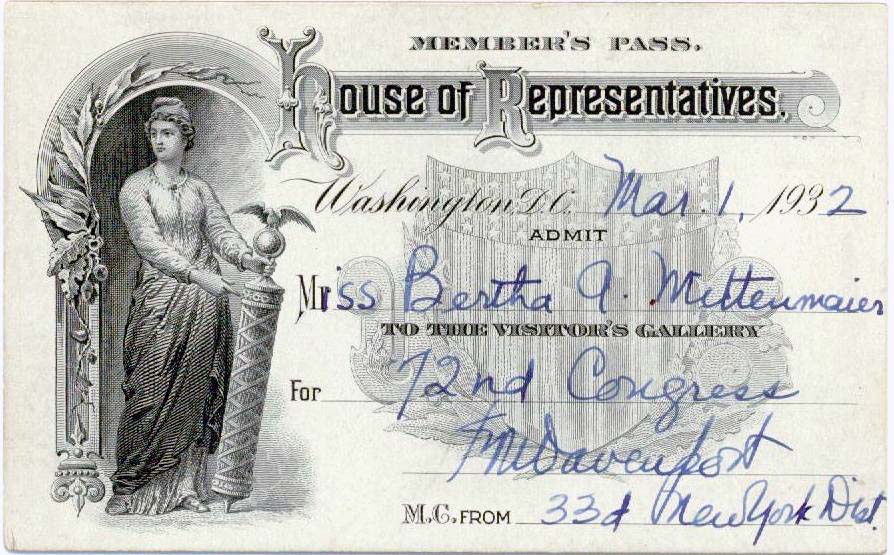 MEMBER'S PASS.
House of Representatives.
Washington, D.C. Mar. 1, 1932
ADMIT
Miss Bertha A. Mittenmaier
TO THE VISITOR'S GALLERY
For 72nd Congress
FMDavenport
M.C. FROM 33d New York Dist.